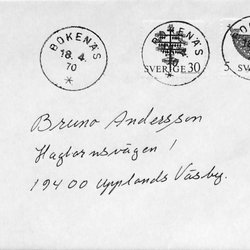 BOKENÄS
18.4.
70
BOKENÄS
SVERIGE 30
5 S
Bruno Andersson
Hagtornsvägen 1
19400 Upplands Väsby.